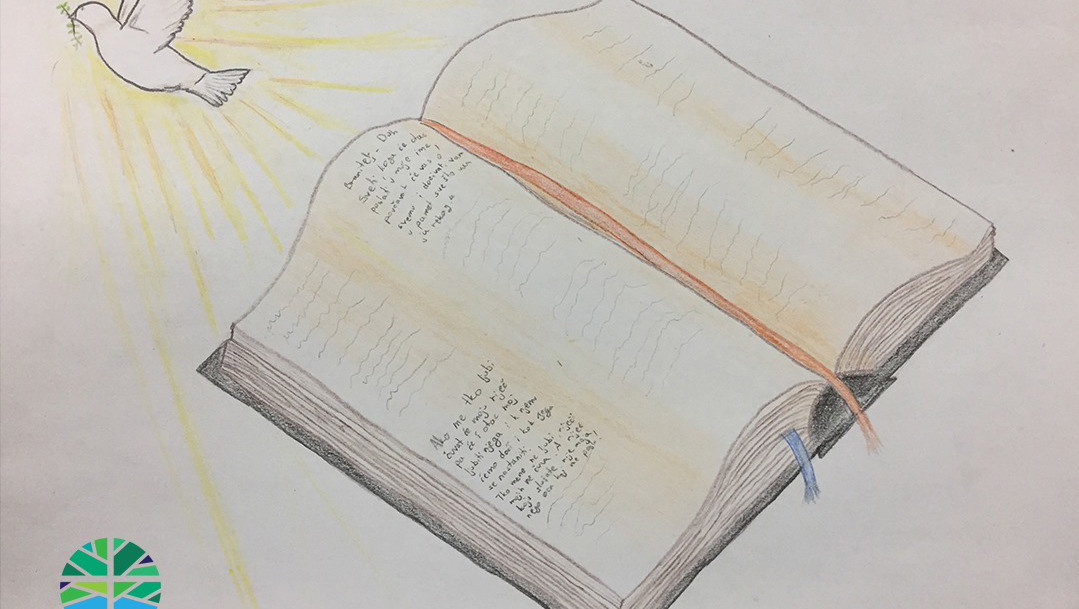 Branitelj - Duh
Sveti koga će otac
poslati u moje ime
poučavat će vas
svemu i dozivat
u pamet sve što vam
Ako me tko ljubi
čuvat će moju riječ
pa će i otac moj
ljubiti njega i k njemu
ćemo doći i kod njega
se nastaniti
Tko mene ne ljubi
riječi mojih ne čuva. A riječ
koju slušate nije moja
nego oca koji me posla